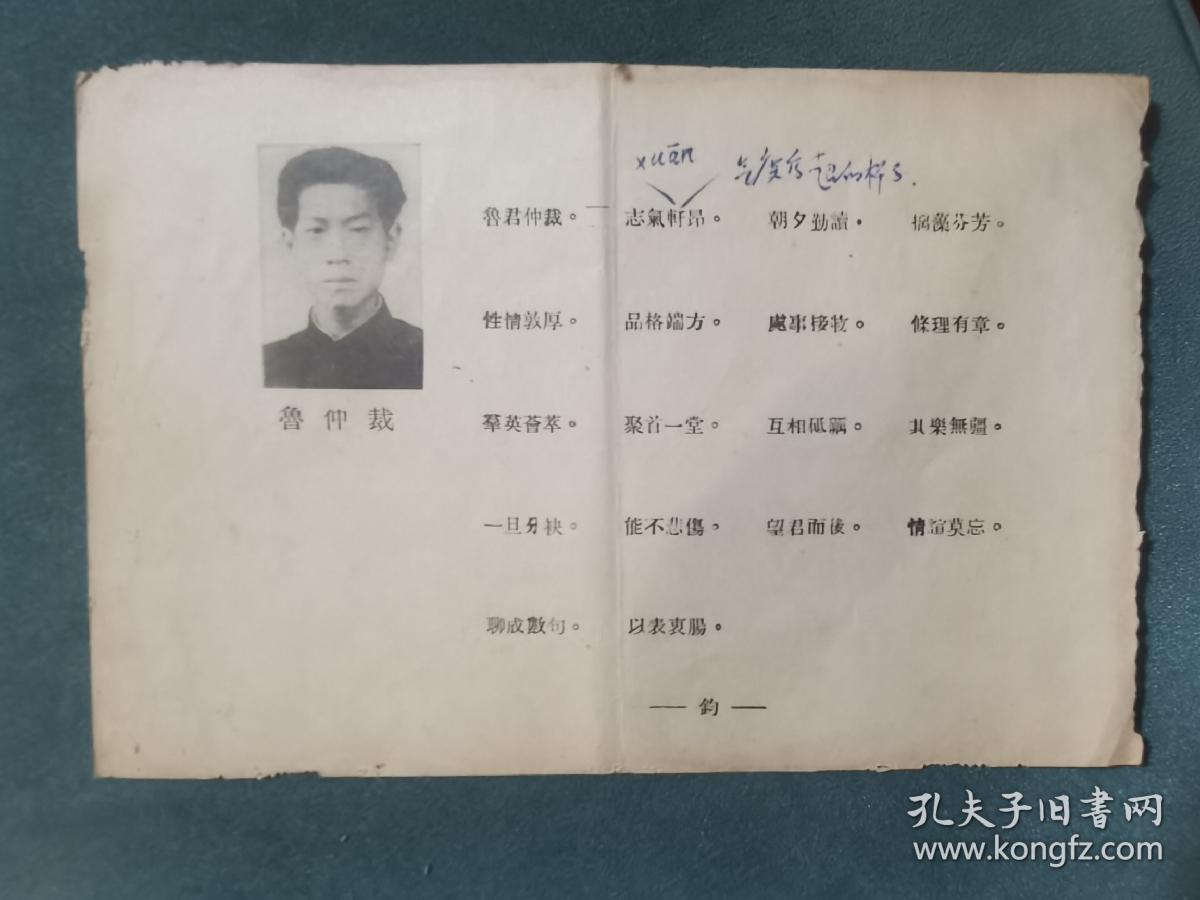 xuān
魯君仲裁。 志氣軒昂。 朝夕勤讀。 摛藻芬芳。
性情敦厚。 品格端方。 處事接物。 條理有章。
魯仲裁
羣英薈萃。 聚首一堂。 互相砥礪。 其樂無疆。
一旦分袂。 能不悲傷。 望君而後。 情誼莫忘。
聊成數句。 以表衷腸。
— 鈞 —
孔夫子旧书网
www.kongfz.com